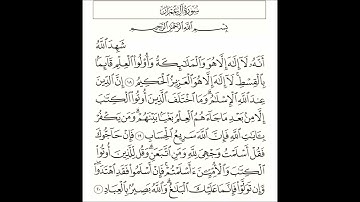 سُورَةُ آلِ عِمْرَانَ
بِسْمِ اللَّهِ الرَّحْمَٰنِ الرَّحِيمِ
شَهِدَ اللَّهُ
أَنَّهُ لَا إِلَٰهَ إِلَّا هُوَ وَالْمَلَائِكَةُ وَأُولُوا الْعِلْمِ قَائِمًا
بِالْقِسْطِ لَا إِلَٰهَ إِلَّا هُوَ الْعَزِيزُ الْحَكِيمُ ١٨ إِنَّ الدِّينَ
عِندَ اللَّهِ الْإِسْلَامُ وَمَا اخْتَلَفَ الَّذِينَ أُوتُوا الْكِتَابَ
إِلَّا مِن بَعْدِ مَا جَاءَهُمُ الْعِلْمُ بَغْيًا بَيْنَهُمْ وَمَن يَكْفُرْ
بِآيَاتِ اللَّهِ فَإِنَّ اللَّهَ سَرِيعُ الْحِسَابِ ١٩ فَإِنْ حَاجُّوكَ
فَقُلْ أَسْلَمْتُ وَجْهِيَ لِلَّهِ وَمَنِ اتَّبَعَنِ وَقُل لِّلَّذِينَ أُوتُوا
الْكِتَابَ وَالْأُمِّيِّينَ أَأَسْلَمْتُمْ فَإِنْ أَسْلَمُوا فَقَدِ اهْتَدَوا
وَّإِن تَوَلَّوْا فَإِنَّمَا عَلَيْكَ الْبَلَاغُ وَاللَّهُ بَصِيرٌ بِالْعِبَادِ ٢٠